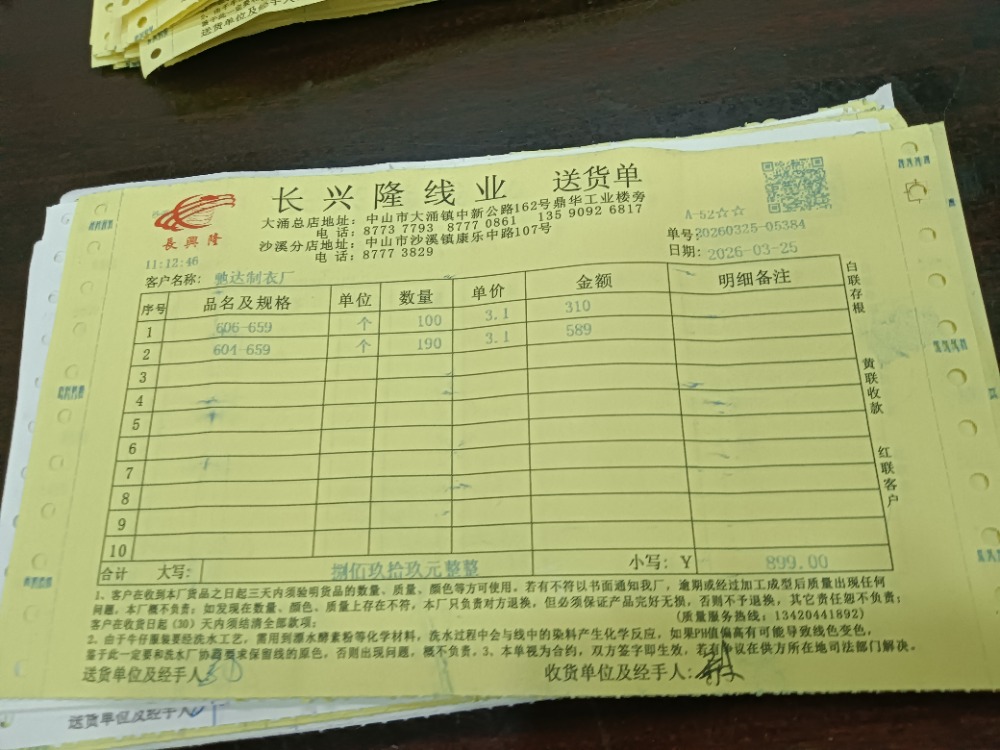 送货单位及经手人
长兴隆线业 送货单
長興隆
大涌总店地址：中山市大涌镇中新公路162号鼎华工业楼旁
电 话：8773 7793 8777 0861 135 9092 6817
沙溪分店地址：中山市沙溪镇康乐中路107号
电 话：8777 3829
A-52☆☆
单号:20260325-05384
日期: 2026-03-25
11:12:46
客户名称: 驰达制衣厂
序号 品名及规格 单位 数量 单价 金额 明细备注
1 606-659 个 100 3.1 310
2 604-659 个 190 3.1 589
3
4
5
6
7
8
9
10
合计 大写: 捌佰玖拾玖元整整 小写：Y 899.00
白联存根
黄联收款
红联客户
1、客户在收到本厂货品之日起三天内须验明货品的数量、质量、颜色等方可使用。若有不符以书面通知我厂，逾期或经过加工成型后质量出现任何
问题，本厂概不负责；如发现在数量、颜色、质量上存在不符，本厂只负责对方退换，但必须保证产品完好无损，否则不予退换，其它责任恕不负责；
客户在收货日起（30）天内须结清全部款项； (质量服务热线：13420441892)
2、由于牛仔服装要经洗水工艺，需用到漂水酵素粉等化学材料，洗水过程中会与线中的染料产生化学反应，如果PH值偏高有可能导致线色变色，
鉴于此一定要和洗水厂协商要求保留线的原色，否则出现问题，概不负责。3、本单视为合约，双方签字即生效，若有争议在供方所在地司法部门解决。
送货单位及经手人: 收货单位及经手人:
送货单位及经手人